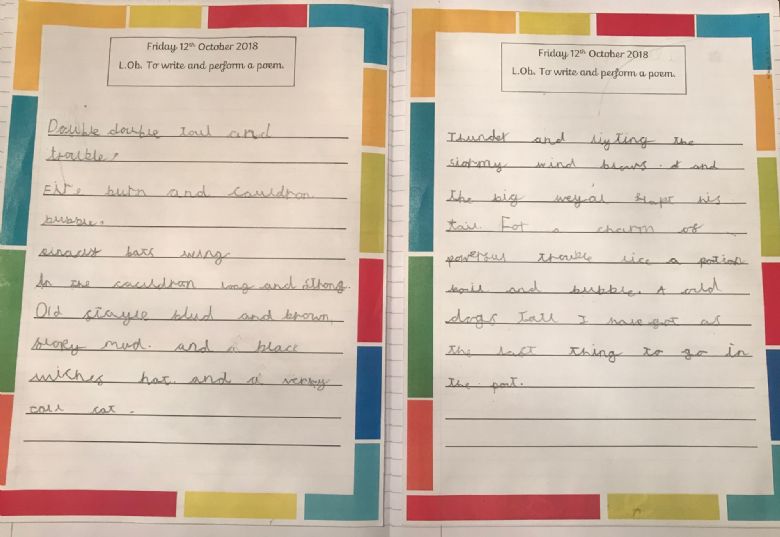 Friday 12th October 2018
L.Ob. To write and perform a poem.
Double double toul and
trouble!
Fire burn and cauldron
bubble.
bats wing
In the cauldron long and strong.
Old stayle blud and brown
slopy mud. and a black
wiches hat. and a
cat.
Friday 12th October 2018
L.Ob. To write and perform a poem.
Thunder and ligting the
stormy wind blows. d and
the big his
tail. For a charm of
powerful trouble lice a potion
boil and bubble. A old
dogs tall I have got as
the last thing to go in
the pot.